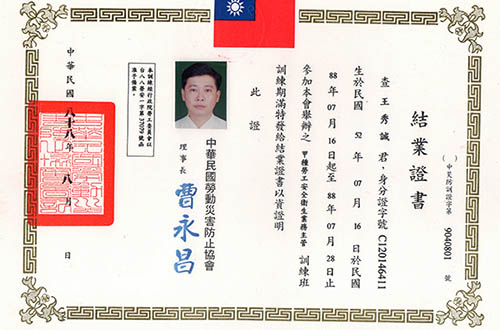 結業證書
( )中災防訓證字第 9040801 號
查 王秀誠 君,身分證字號 C120146411
生於民國 52 年 07 月 16 日於民國
88 年 07 月 16 日起至 88 年 07 月 28 日止
參加本會舉辦之 甲種勞工安全衛生業務主管 訓練班
訓練期滿特發給結業證書以資證明
此證
中華民國勞動災害防止協會
理事長 曹永昌
本訓練經行政院勞工委員會以
台八八勞安一字第 37079 號函
准予備案。
中華民國 八十八年 八月 日